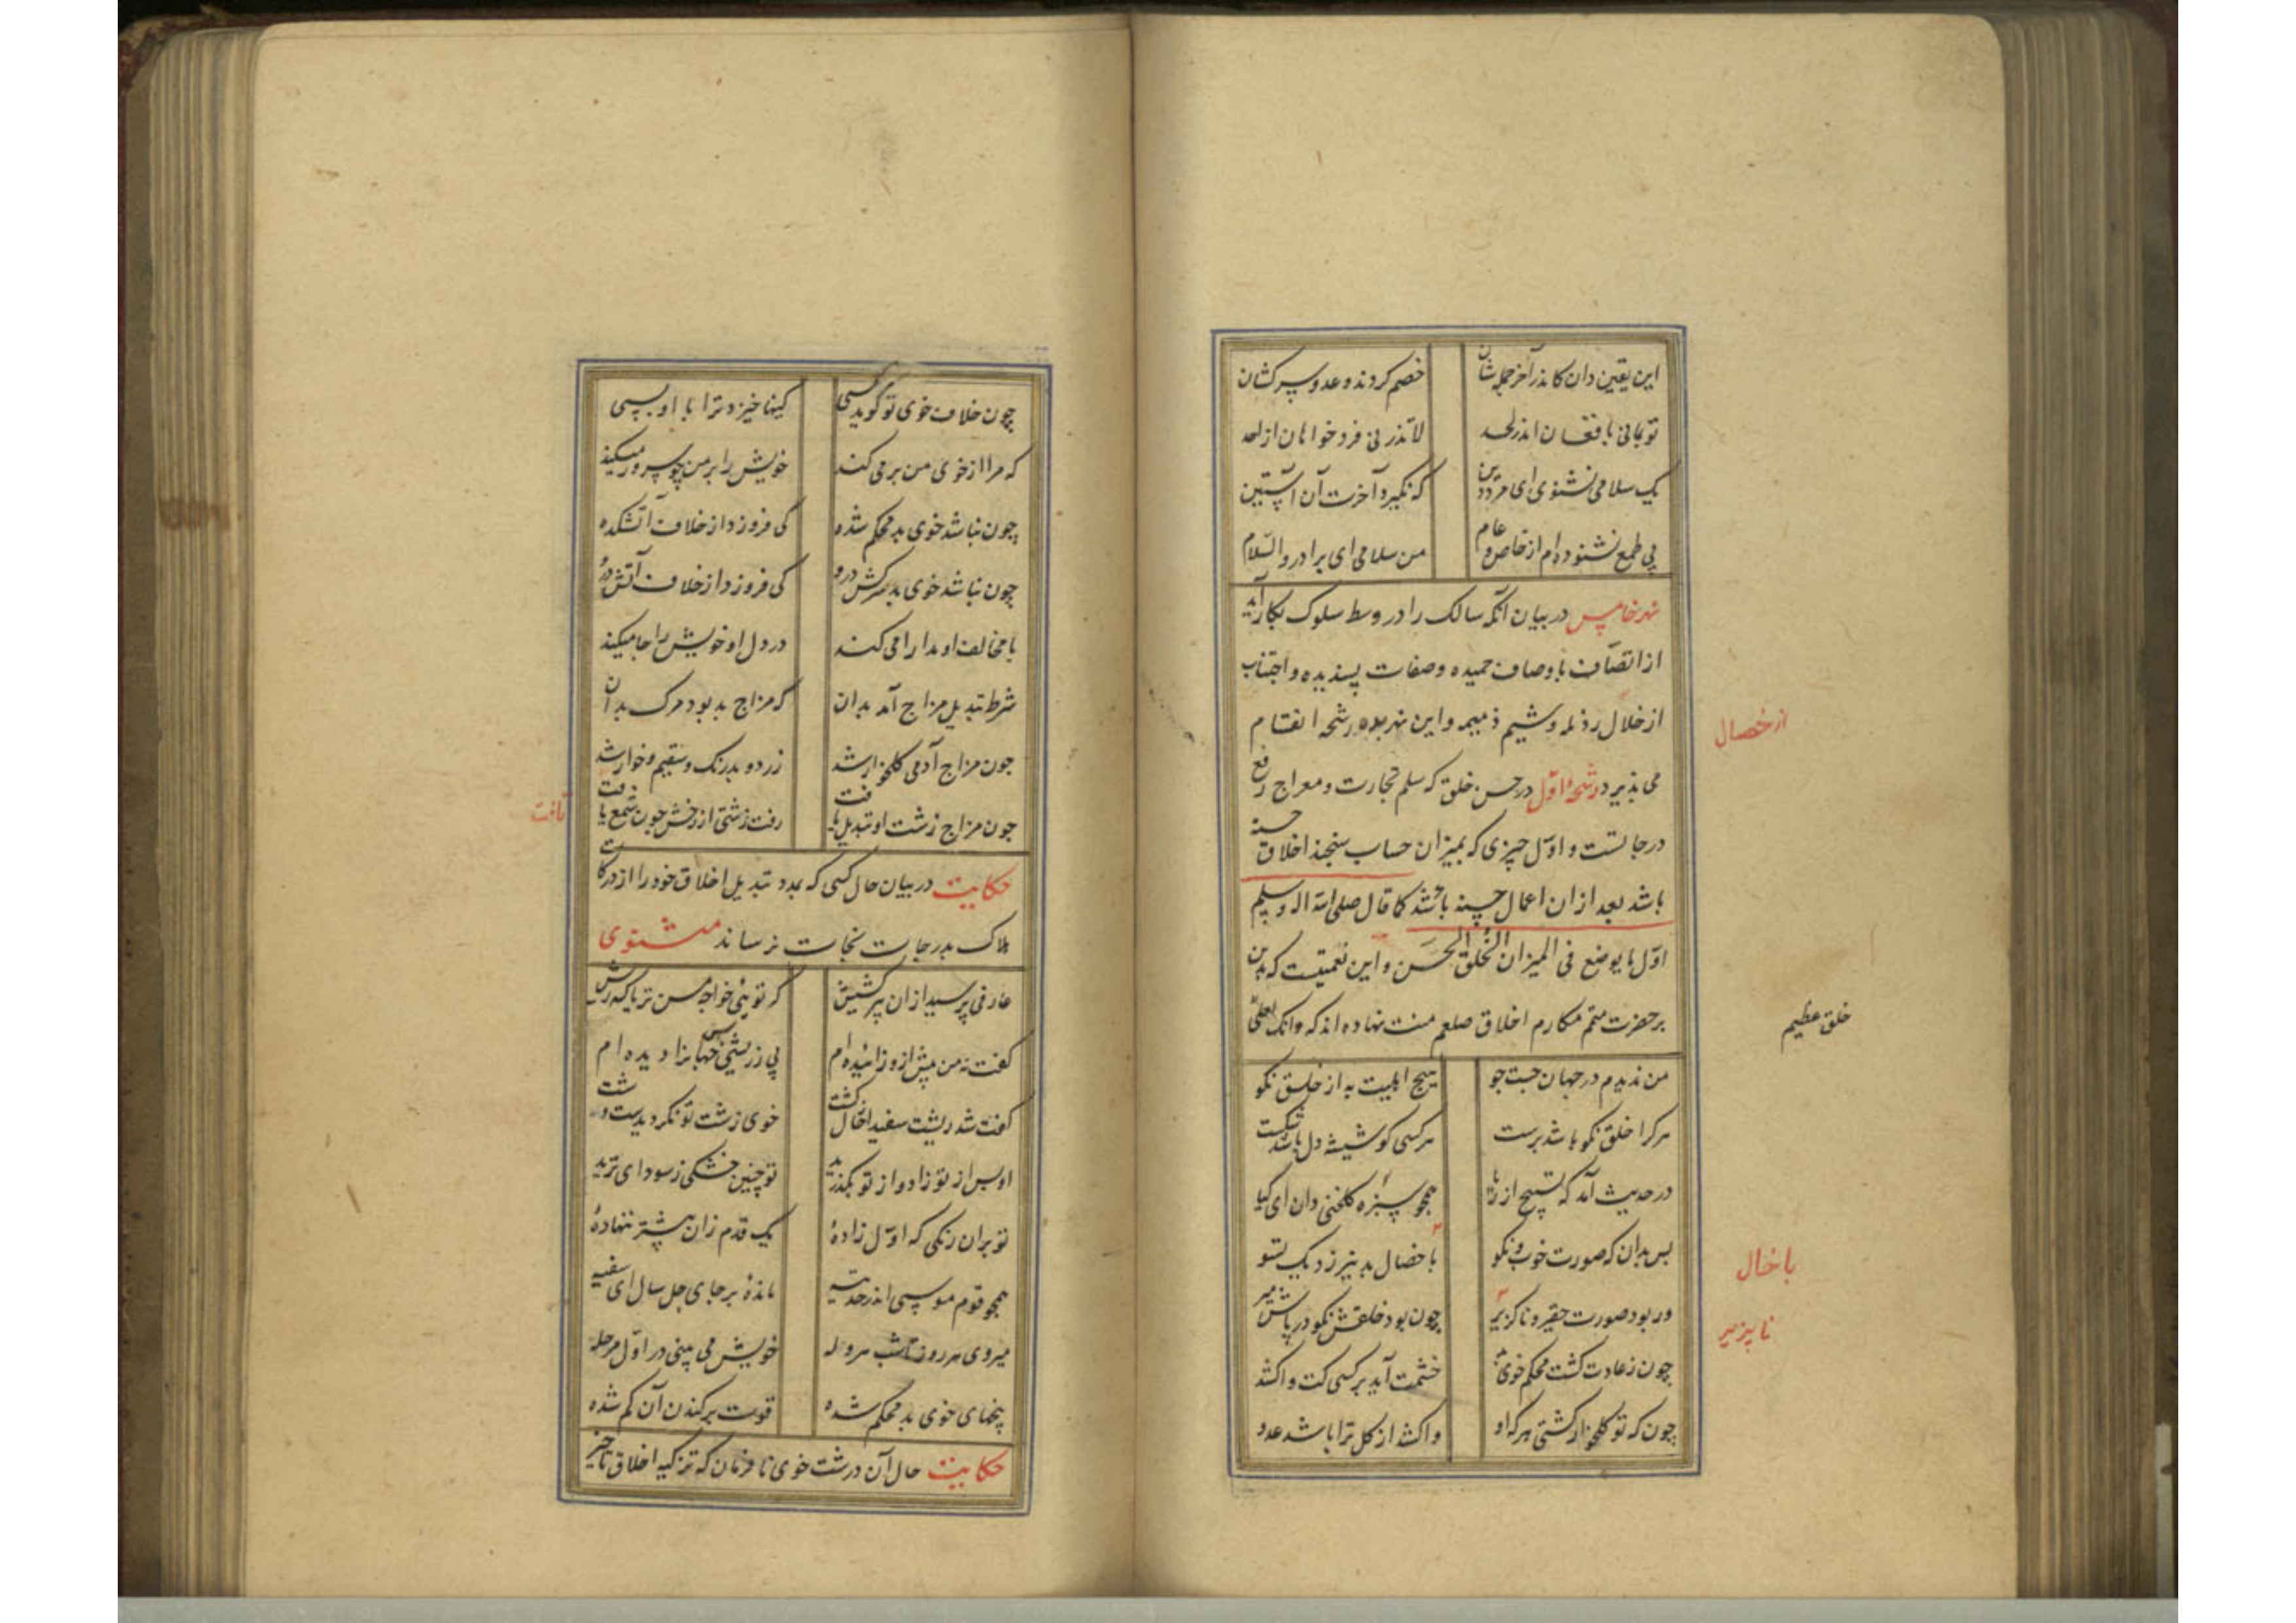 این یقین دان کاندر آخر جمله‌شان خصم گردند و عدو و سرکشان
تو بمانی با فغان اندر لحد لا تذرنی فرد خوانان از احد
یک سلامی نشنوی ای مرد دین که نگیرد آخرت آن آستین
بی طمع نشنوده‌ام از خاص و عام من سلامی ای برادر والسلام
نهر خامس در بیان آنکه سالک را در وسط سلوک بکار آید
از اتصاف باوصاف حمیده و صفات پسندیده و اجتناب
از خلال رذله و شیم ذمیمه و این نهر بده رشحه انقسام
می پذیرد رشحهٔ اول در حسن خلق که سلم تجارت و معراج رفع
درجاتست و اول چیزی که بمیزان حساب سنجند اخلاق حسنه
باشد بعد از ان اعمال حسنه باشد کما قال صلی الله و سلم
اول ما یوضع فی المیزان الخلق الحسن و این نعمتیست که بدین
بر حضرت متمم مکارم اخلاق صلعم منت نهاده اند که وانک لعلی
خلق عظیم
از خصال
من ندیدم در جهان جست جو هیچ اهلیت به از خلق نکو
هرکرا خلق نکو باشد برست هر کسی کو شیشه دل باشد شکست
در حدیث آمد که تسبیح از ریا همچو سبزه گلخنی دان ای کیا
بس بدان که صورت خوب و نکو با خصال بد نیرزد یک تسو
با خال
ور بود صورت حقیر و ناگزیر چون بود خلقش نکو در پاش میر
ناپزیر
چون ز عادت گشت محکم خوی بد خشمت آید بر کسی کت واکشد
چون که تو گلخوار گشتی هرکه او واکشد از گل ترا باشد عدو
چون خلاف خوی تو گوید کسی کینها خیزد ترا با او بسی
که مرا از خوی من برمی کند خویش را بر من چو سرور میکند
چون نباشد خوی بد محکم شده کی فروزد از خلاف آتشکده
چون نباشد خوی بد سرکش درو کی فروزد از خلاف آتش درو
با مخالف او مدارا می کند در دل او خویش را جا میکند
شرط تبدیل مزاج آمد بدان که مزاج بد بود مرگ بدان
چون مزاج آدمی گلخوار شد زرد و بدرنگ و سقیم و خوار شد
چون مزاج زشت او تبدیل یافت رفت زشتی از رخش چون شمع یافت
تافت
حکایت در بیان حال کسی که بمدد تبدیل اخلاق خود را از درکات
هلاک بدرجات نجات نرساند مثنوی
عارفی پرسید ازان پیر کشیش که توئی خواجه مسن تر یا که ریش
گفت نه من پیش ازو زائیده‌ام بی ز ریشی بس جهانرا دیده‌ام
گفت شد ریشت سفید از حال گشت خوی زشت تو نگردیدست وشت
او پس از تو زاد و از تو بگذرید تو چنین خشکی ز سودای ترید
تو بران رنگی که اول زادهٔ یک قدم زان پیشتر ننهادهٔ
همچو قوم موسی اندر حر تیه ماندهٔ بر جای چل سال ای سفیه
میروی هر روز تا شب هروله خویش می بینی در اول مرحله
بیخهای خوی بد محکم شده قوت برکندن آن کم شده
حکایت حال آن درشت خوی نافرمان که تزکیه اخلاق تاخیر